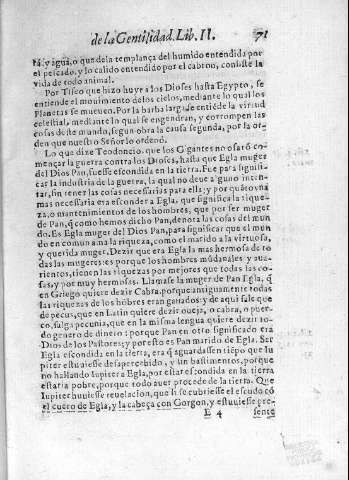 de la Gentilidad. Lib. II. 71
rá, y agua, o que de la templança del humido entendida por
el pescado, y lo calido entendido por el cabron, consiste la
vida de todo animal.
Por Tifeo que hizo huyr a los Dioses hasta Egypto, se
entiende el mouimiento de los cielos, mediante lo qual los
Planetas se mueuen. Por la barba larga se entiẽde la virtud
celestial, mediante lo qual se engendran, y corrompen las
cosas deste mundo, segun obra la causa segunda, por la or-
den que nuestro Señor lo ordenó.
Lo que dize Teodoncio, que los Gigantes no osarõ co-
mençar la guerra contra los Dioses, hasta que Egla muger
del Dios Pan, fuesse escondida en la tierra: Fue para signifi-
car la industria de la guerra, la qual no deue alguno inten-
tar, sin tener las cosas necessarias para ella: y por quãto vna
mas necessaria era esconder a Egla, que significa la rique-
za, o mantenimientos de los hombres, que por ser muger
de Pan, q̃ como hemos dicho Pan, denota las cosas del mun
do. Es Egla muger del Dios Pan, para significar que el mun
do en comun ama la riqueza, como el marido a la virtuosa,
y querida muger. Dezir que era Egla la mas hermosa de to
das las mugeres: es porque los hombres mũdanales y aua-
rientos, tienen las riquezas por mejores que todas las co-
sas, y por muy hermosas. Llamase la muger de Pan Egla, q̃
en Griego quiere dezir Cabra, porque antiguamente todas
las riquezas de los hõbres eran ganados: y de aqui sale que
de pecus, que en Latin quiere dezir oueja, o cabra, o puer-
co, salga pecunia, que en la misma lengua quiere dezir to-
do genero de dinero: porque Pan en otro significado era
Dios de los Pastores; y por esto es Pan marido de Egla. Ser
Egla escondida en la tierra, era q̃ aguardassen tiẽpo que Iu
piter estuuiesse desapercebido, y sin bastimentos, porque
no hallando Iupiter a Egla, por estar escondida en la tierra
estaria pobre, porque todo auer procede de la tierra. Que
Iupiter huuiesse reuelacion, que si se cubriesse el escudo cõ
el cuero de Egla, y la cabeça con Gorgon, y estuuiesse pre-
E 4 sente